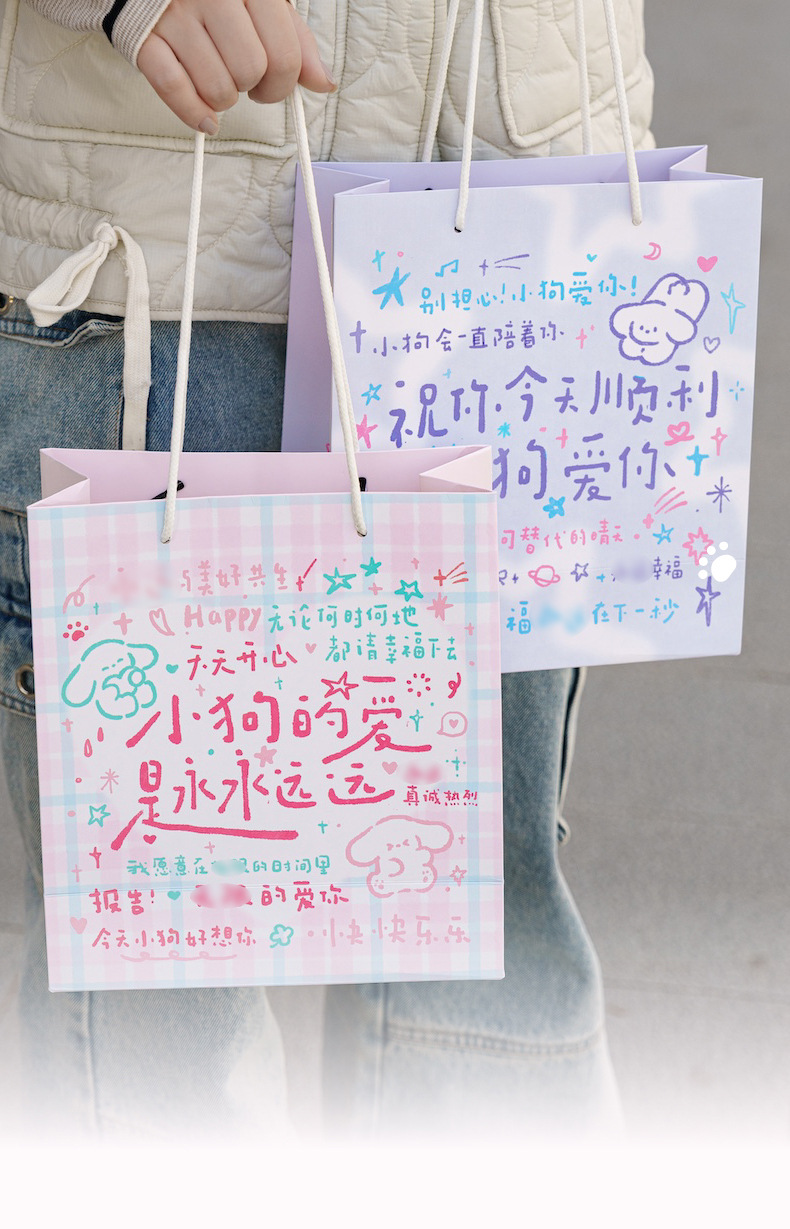 别担心!小狗爱你!
小狗会一直陪着你
祝你今天顺利
狗爱你
可替代的晴天
幸福
福 在下一秒
与美好共生
Happy 无论何时何地
天天开心 都请幸福下去
小狗的爱
是永永远远
真诚热烈
我愿意在 的时间里
报告! 的爱你
今天小狗好想你 快快乐乐